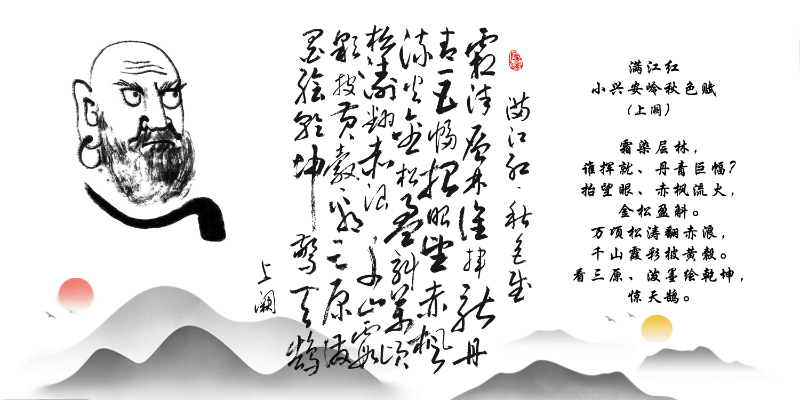 满江红·秋色赋
霜染层林谁挥就丹
青巨幅抬眼望赤枫
流火金松盈斛万顷
松涛翻赤浪千山霞
彩披黄縠看三原泼
墨绘乾坤惊天鹄
上阕
满江红
小兴安岭秋色赋
(上阕)
霜染层林，
谁挥就、丹青巨幅?
抬望眼、赤枫流火，
金松盈斛。
万顷松涛翻赤浪，
千山霞彩披黄縠。
看三原、泼墨绘乾坤，
惊天鹄。